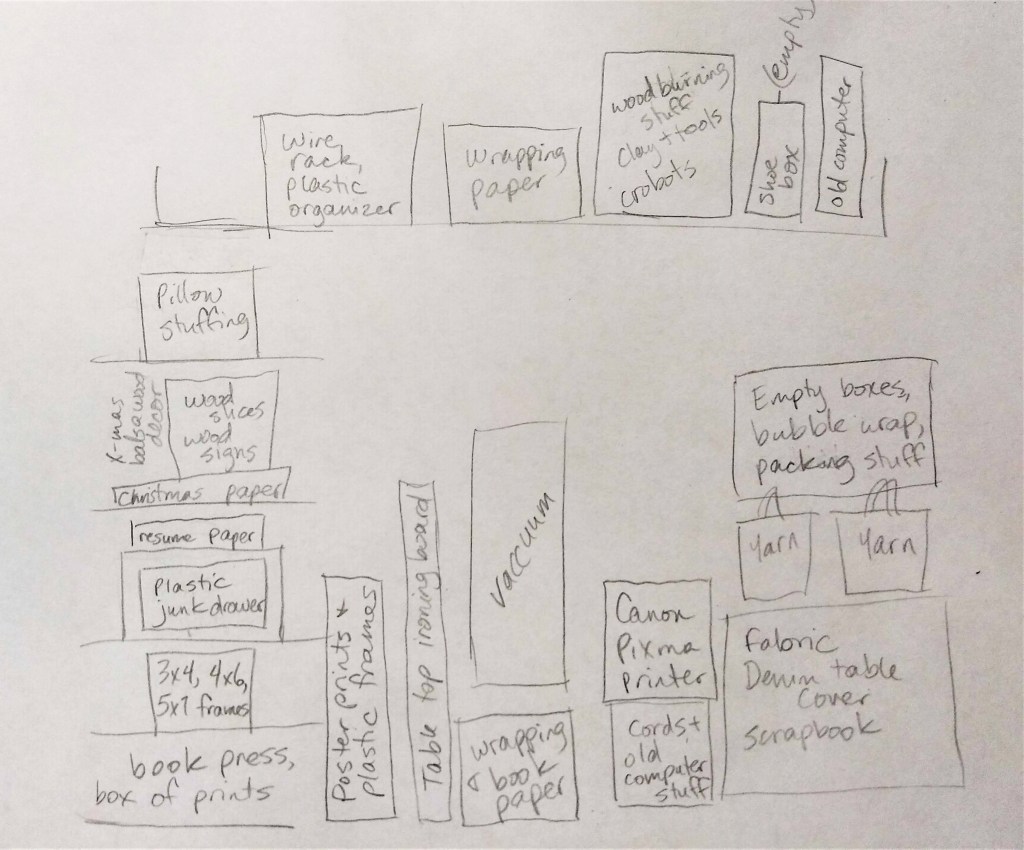 (empty
wire
rack,
plastic
organizer
wrapping
paper
woodburning
stuff
clay + tools
crobots
shoe
box
old computer
Pillow
stuffing
X-mas
balsawood
decor
wood
slices
wood
signs
Christmas paper
resume paper
plastic
junk drawer
3x4, 4x6,
5x7 frames
book press,
box of prints
Poster prints +
plastic frames
Table top ironing board
vaccuum
wrapping
+ book
paper
Canon
Pixma
printer
Cords +
old
computer
stuff
Empty boxes,
bubble wrap,
packing stuff
yarn
yarn
fabric
Denim table
cover
scrapbook